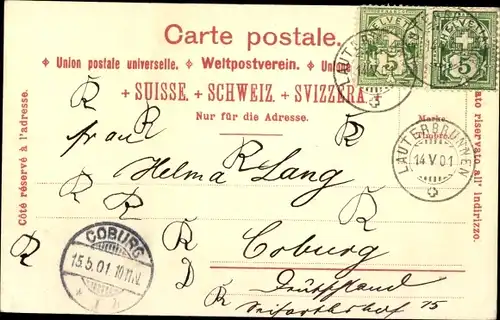 Carte postale.
Union postale universelle. Weltpostverein. Unione
SUISSE. SCHWEIZ. SVIZZERA.
Nur für die Adresse.
Côté réservé à l'adresse.
Lato riservato all' indirizzo.
Marke
Timbre
HELVETIA
5
HELVETIA
5
LAUTERBRUNNEN
LAUTERBRUNNEN
14.V.01
COBURG
15.5.01 10-11 V.
R
R
R
R
R
R
R
R
R
R
R
Frau
Helma Lang
Coburg
Deutschland
15